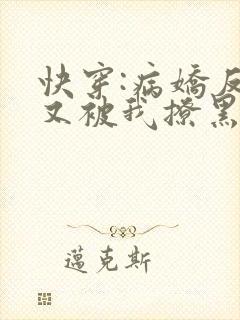 快穿:病嬌反
又被我撩黑
邁克斯